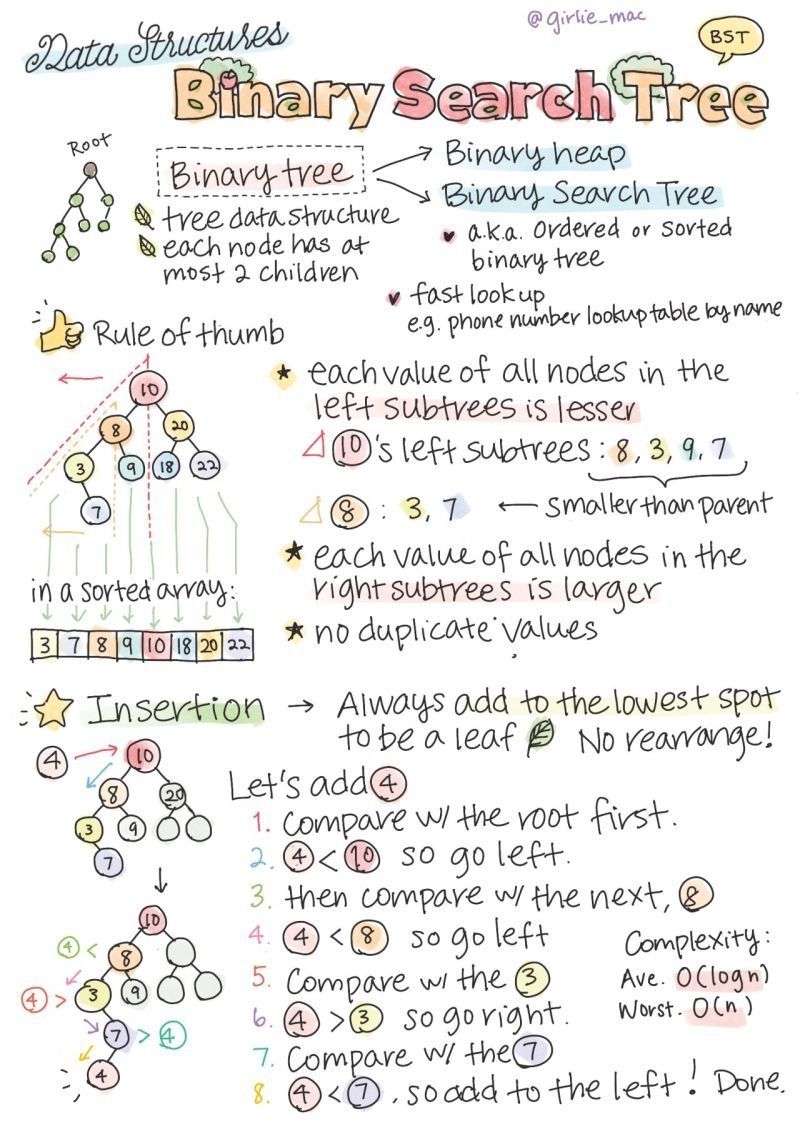 @girlie_mac
Data Structures
BST
Binary Search Tree
Root
Binary tree
Binary heap
Binary Search Tree
tree data structure
each node has at
most 2 children
a.k.a. Ordered or sorted
binary tree
fast lookup
e.g. phone number lookup table by name
Rule of thumb
10
8 20
3 9 18 22
7
in a sorted array:
3 7 8 9 10 18 20 22
★ each value of all nodes in the
left subtrees is lesser
10's left subtrees : 8, 3, 9, 7
8 : 3, 7 ← smaller than parent
★ each value of all nodes in the
right subtrees is larger
★ no duplicate values
Insertion → Always add to the lowest spot
to be a leaf No rearrange!
4 10
8 20
3 9
7
10
4 < 8
4 > 3 9
7 > 4
4
Let's add 4
1. Compare w/ the root first.
2. 4 < 10 so go left.
3. then compare w/ the next, 8
4. 4 < 8 so go left
5. Compare w/ the 3
6. 4 > 3 so go right.
7. Compare w/ the 7
8. 4 < 7, so add to the left! Done.
Complexity:
Ave. O(log n)
Worst. O(n)